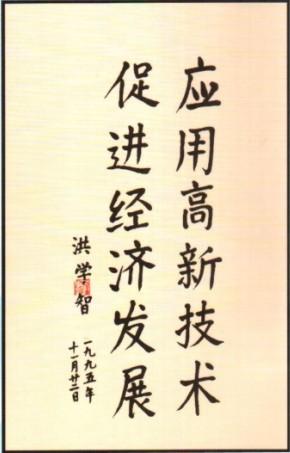 应用高新技术
促进经济发展
洪学智
一九九五年
十一月廿二日